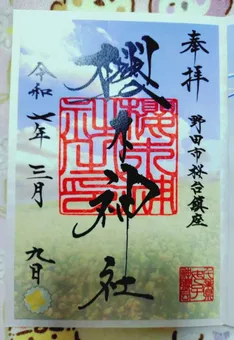 奉拝
野田市桜台鎮座
櫻木神社
櫻木神社之印
令和七年三月
九日